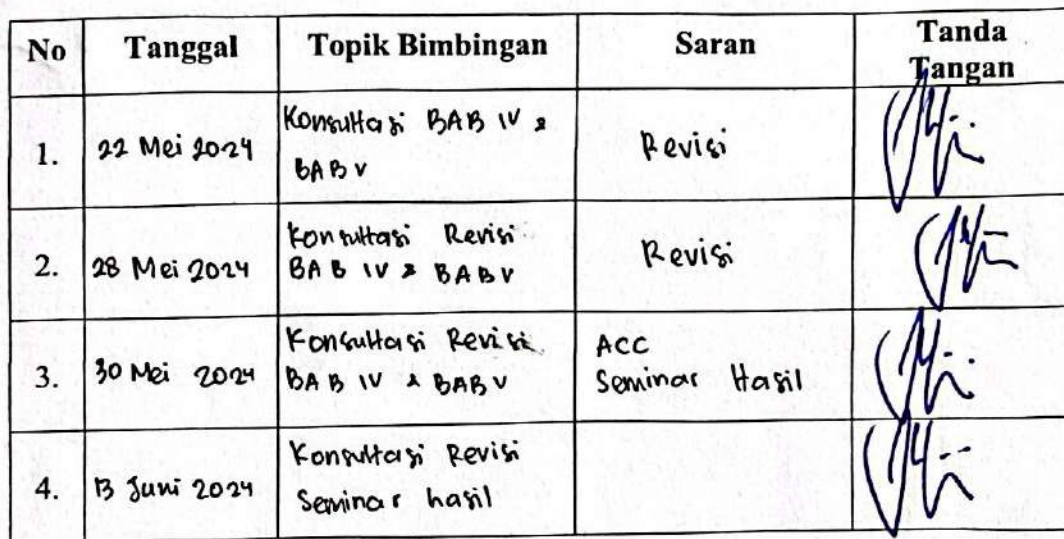 No Tanggal Topik Bimbingan Saran Tanda
Tangan
1. 22 Mei 2024 Konsultasi BAB IV &
BAB V
Revisi
2. 28 Mei 2024 Konsultasi Revisi
BAB IV & BAB V
Revisi
3. 30 Mei 2024 Konsultasi Revisi
BAB IV & BAB V
ACC
Seminar Hasil
4. 13 Juni 2024 Konsultasi Revisi
Seminar hasil